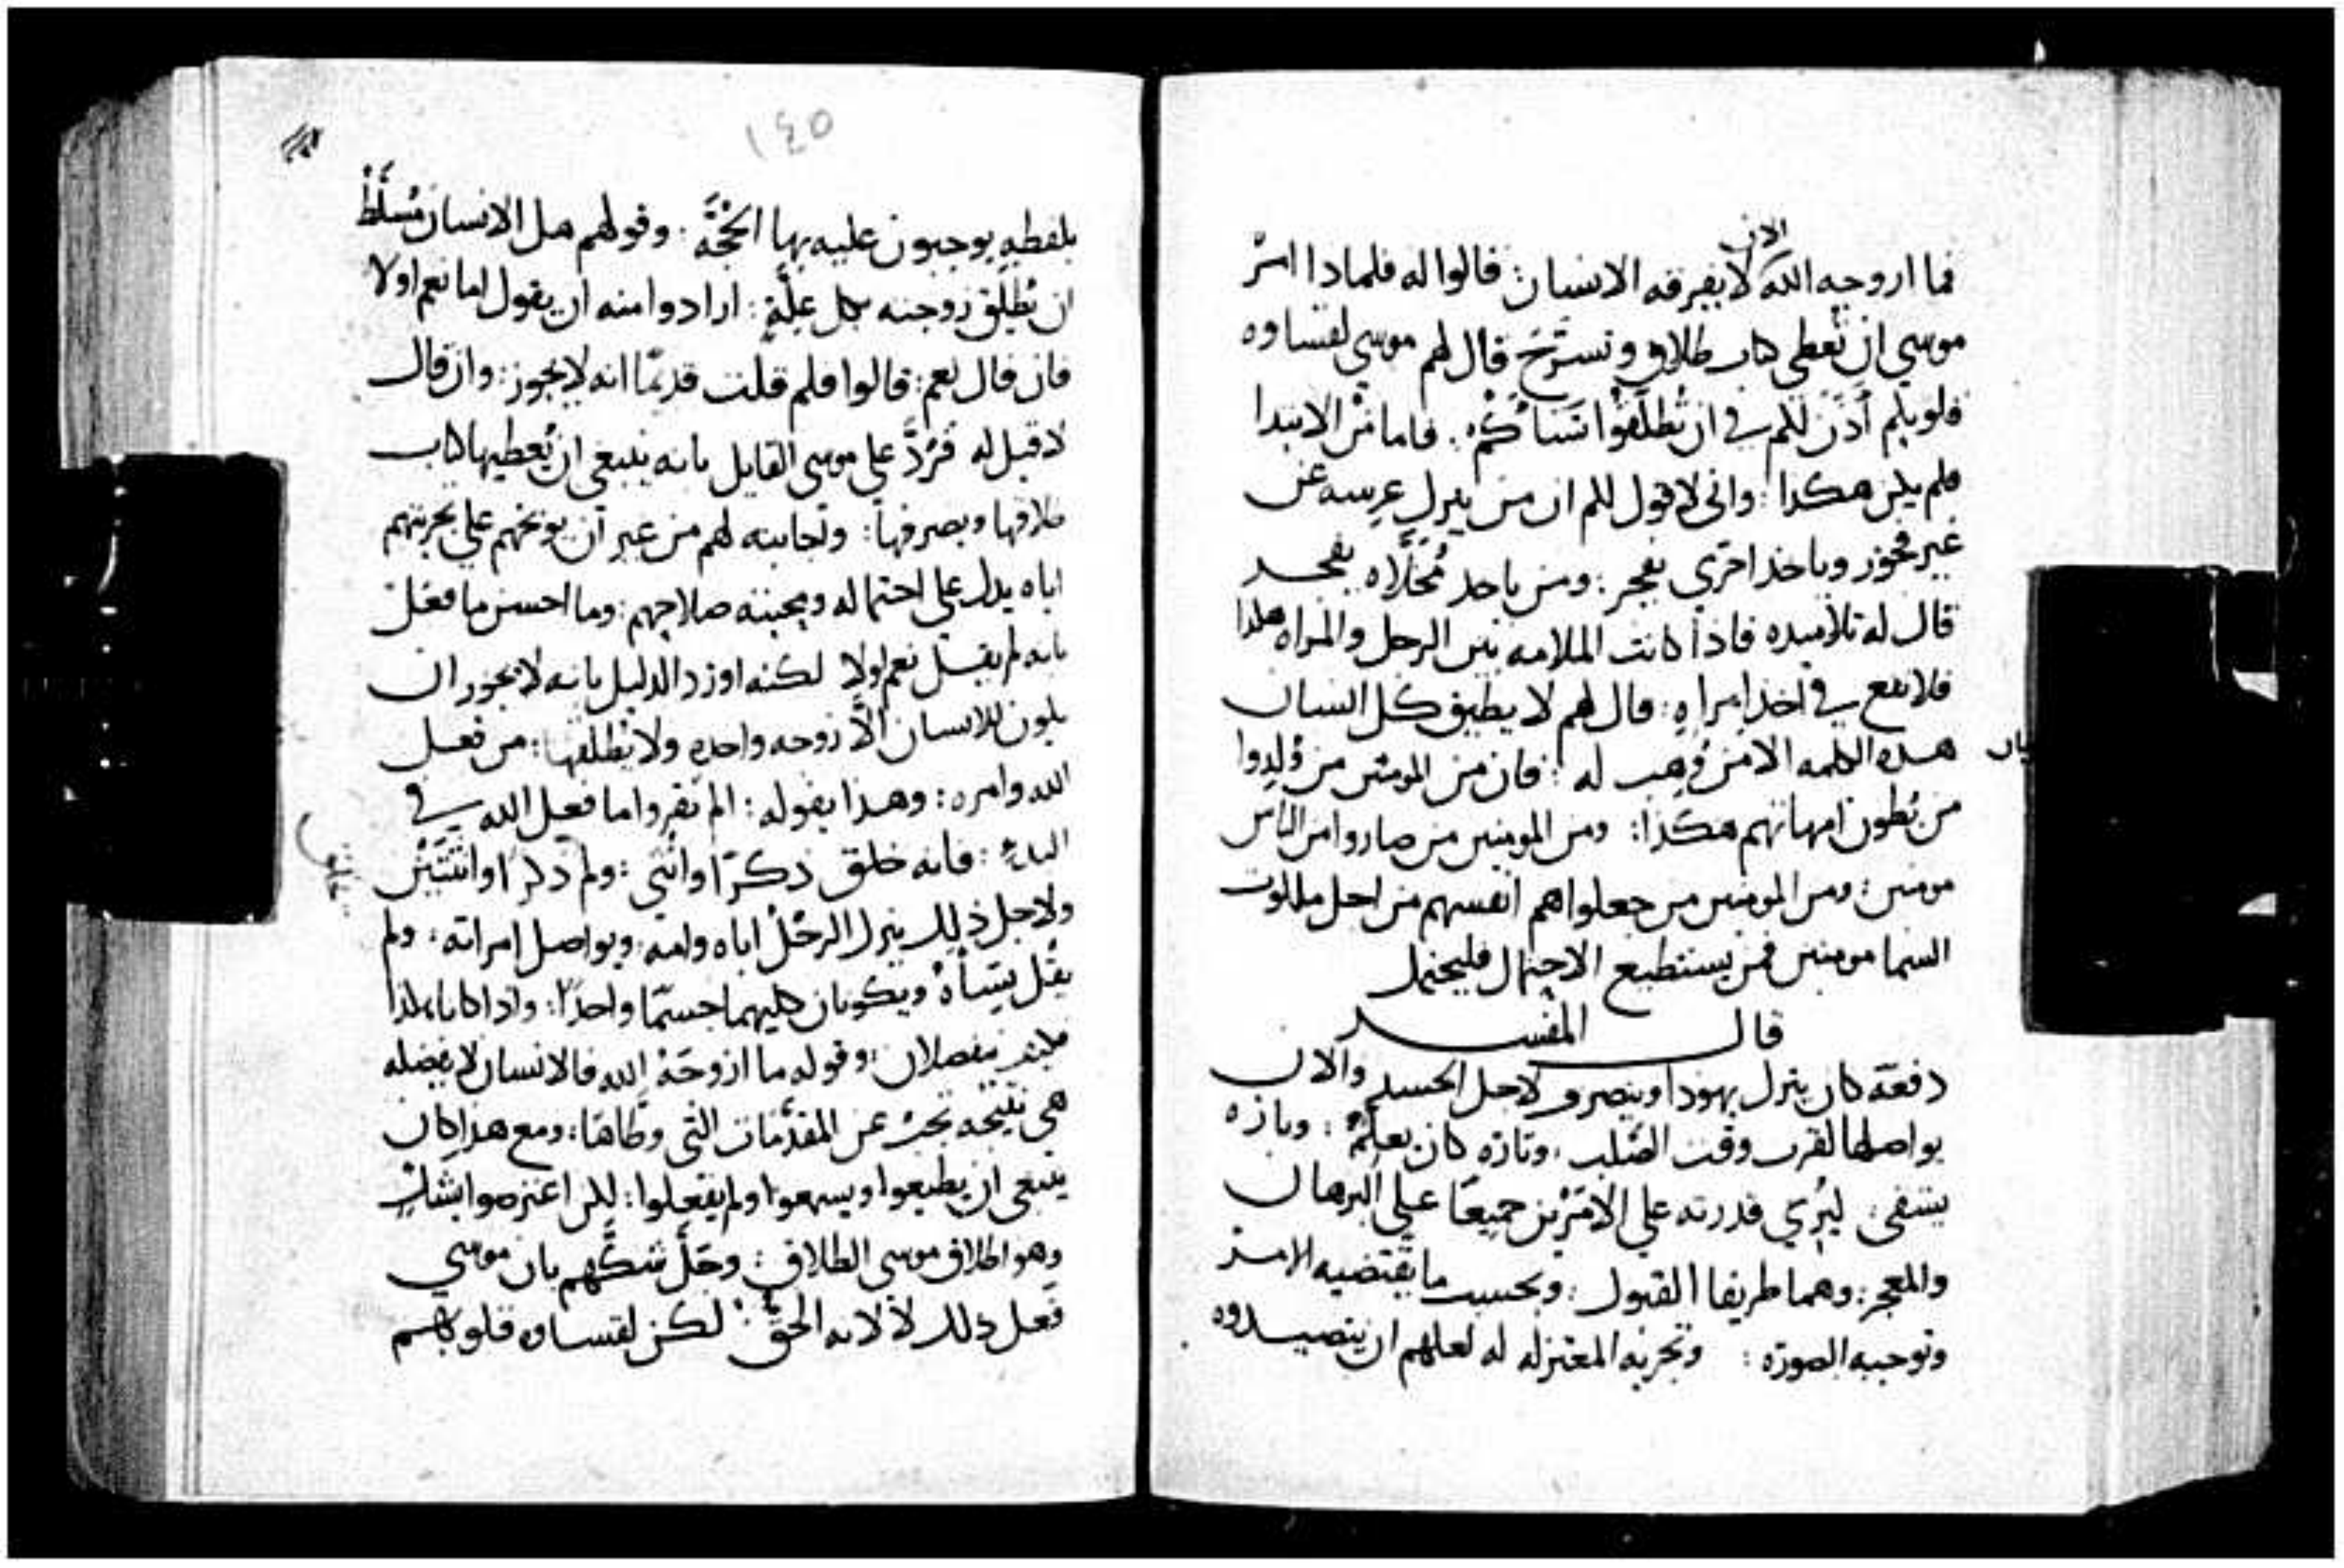 الان
فما ازوجه الله لا يفرقه الانسان: قالوا له فلماذا امر
موسي ان تعطي كتاب طلاق وتسرح قال لهم موسى لقساوه
قلوبكم أذن لكم في ان تطلقوا نساكم. فاما من الابتدا
فلم يكن هكذا: واني لاقول لكم ان من يترك عرسه عن
غير فجور وياخذ اخري يفجر: ومن ياخذ مخلاه يفجر
قال له تلاميذه فاذا كانت الملامه بين الرجل والمراه هكذا
فلا نفع في اخذ امراه: قال لهم لا يطيق كل انسان
هذه الكلمه الا من وهب له: فان من المومنين من ولدوا
من بطون امهاتهم هكذا: ومن المومنين من صاروا من الناس
مومنين: ومن المومنين من جعلوا هم انفسهم من اجل ملكوت
السما مومنين فمن يستطيع الاحتمال فليحتمل
قال المفسر
دفعة كان يترك يهوذا وينصرف لاجل الحسد والان
يواصلها لقرب وقت الصلب: وتارة كان يعلم: وتارة
يشفي: ليري قدرته علي الامرين جميعا علي البرهان
والمعجز: وهما طريقا القبول: وبحسب ما يقتضيه الامر
وتوجبه الصورة: وتجربه المعتزله له لعلهم ان يتصيدوه
١٤٥
بلفظه يوجبون عليه بها الحجة. وقولهم هل الانسان مسلط
ان يطلق زوجته بكل علة: ارادوا منه ان يقول اما نعم او لا
فان قال نعم: قالوا فلم قلت قديما انه لا يجوز: وان قال
لا قيل له فرد على موسى القايل بانه ينبغي ان يعطيها كتاب
طلاقها ويصرفها: ومجابته لهم من غير ان يوبخهم علي تجربتهم
اياه يدل علي احتماله ومحبته صلاحهم: وما احسن ما فعل
بانه لم يقل نعم او لا لكنه اورد الدليل بانه لا يجوز ان
يكون للانسان الا زوجه واحده ولا يطلقها: من فعل
الله وامره: وهذا بقوله: الم تقروا ما فعل الله في
البدء: فانه خلق ذكرا وانثي: ولم ذكرا وانثتين
ولاجل ذلك يترك الرجل اباه وامه: ويواصل امراته: ولم
يقل نساه ويكونان كليهما جسما واحدا: واذا كانا هكذا
فليس ينفصلان: وقوله ما ازوجه الله فالانسان لا يفصله
هي نتيجه تجب عن المقدمات التي وطاها: ومع هذا كان
ينبغي ان يطيعوا ويسمعوا ولم يفعلوا: لكن اعترضوا بشك
وهو اطلاق موسى الطلاق: وحل شكهم بان موسي
فعل ذلك لا لانه الحق: لكن لقساوه قلوبهم